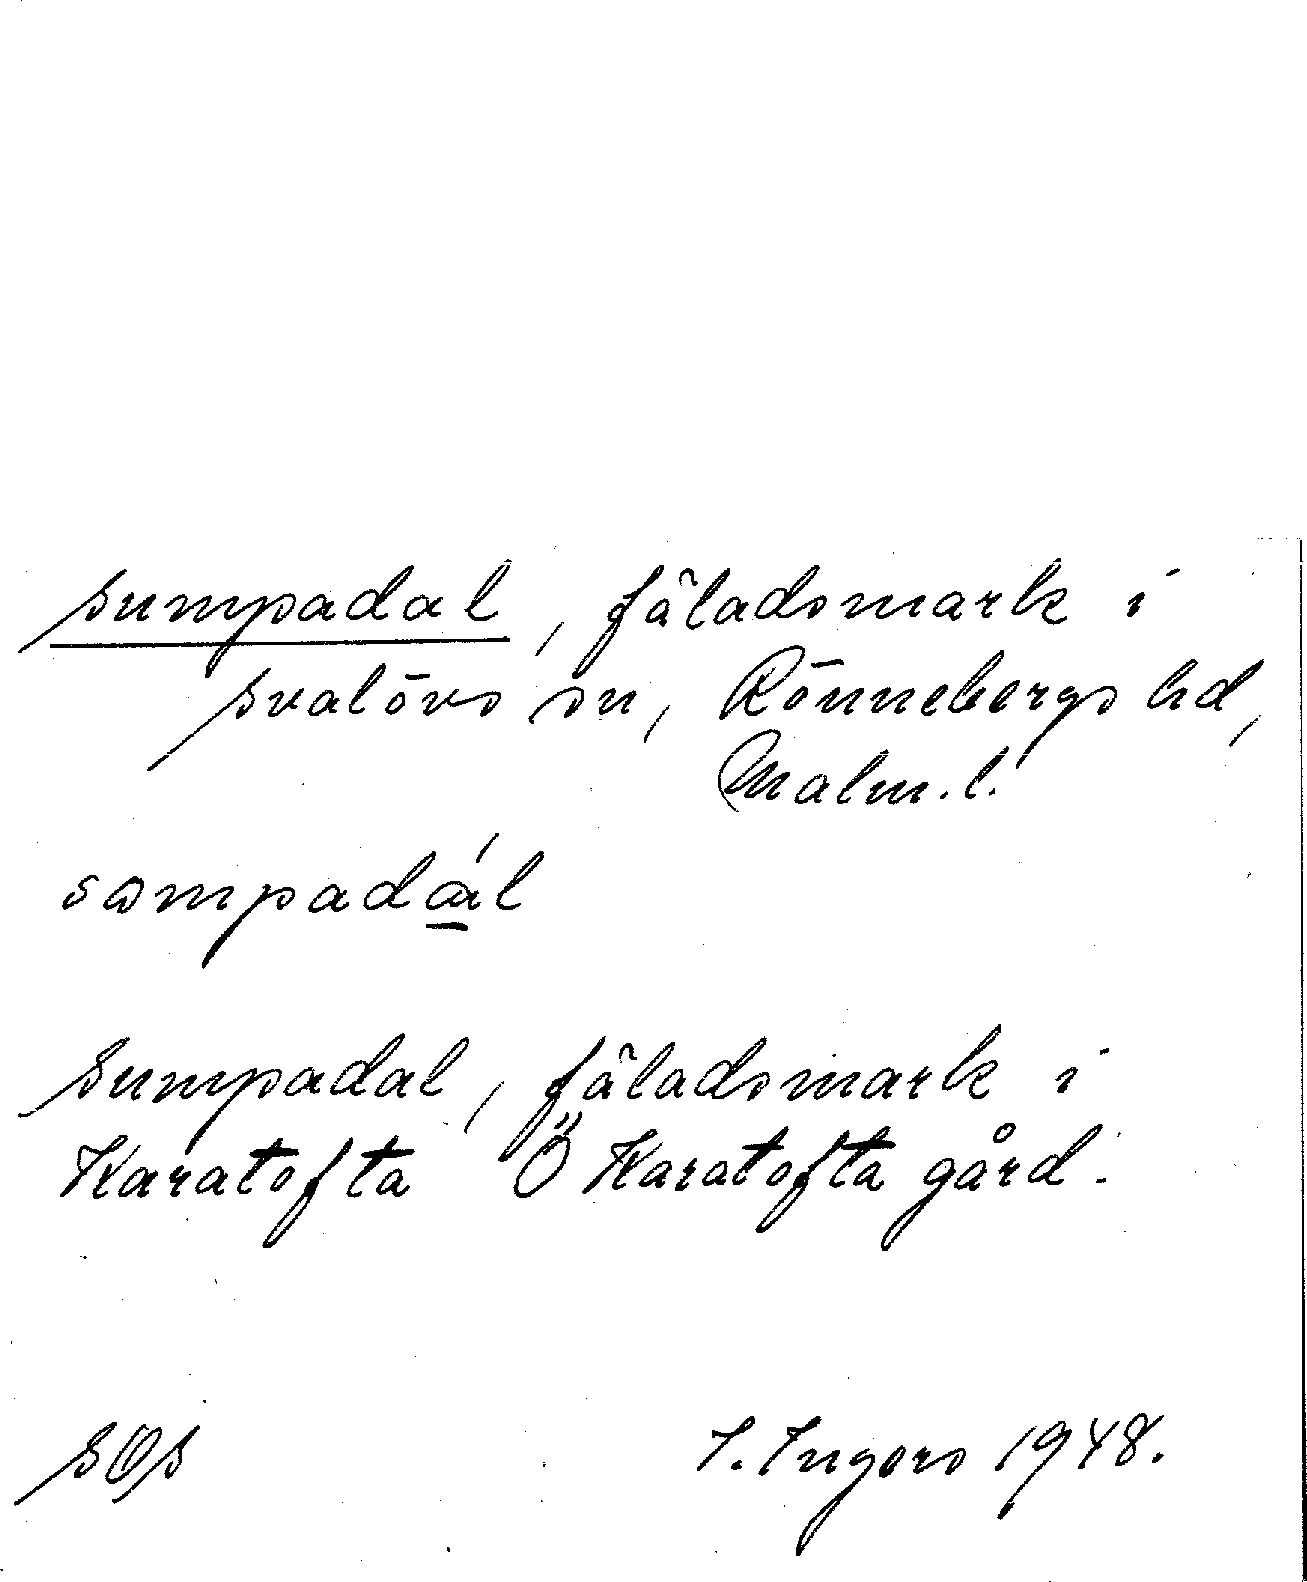 Sumpadal, fäladsmark i
Svalövs sn, Rönnebergs hd,
Malm.l.
sɷmpadál
Sumpadal, fäladsmark i
Karatofta Ö Karatofta gård.
SOS I. Ingers 1948.